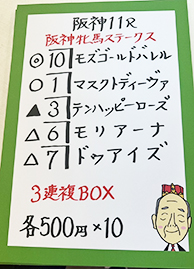 阪神11R
阪神牝馬ステークス
◎10 モズゴールドバレル
○1 マスクトディーヴァ
▲3 テンハッピーローズ
△6 モリアーナ
△7 ドゥアイズ
3連複BOX
各500円×10